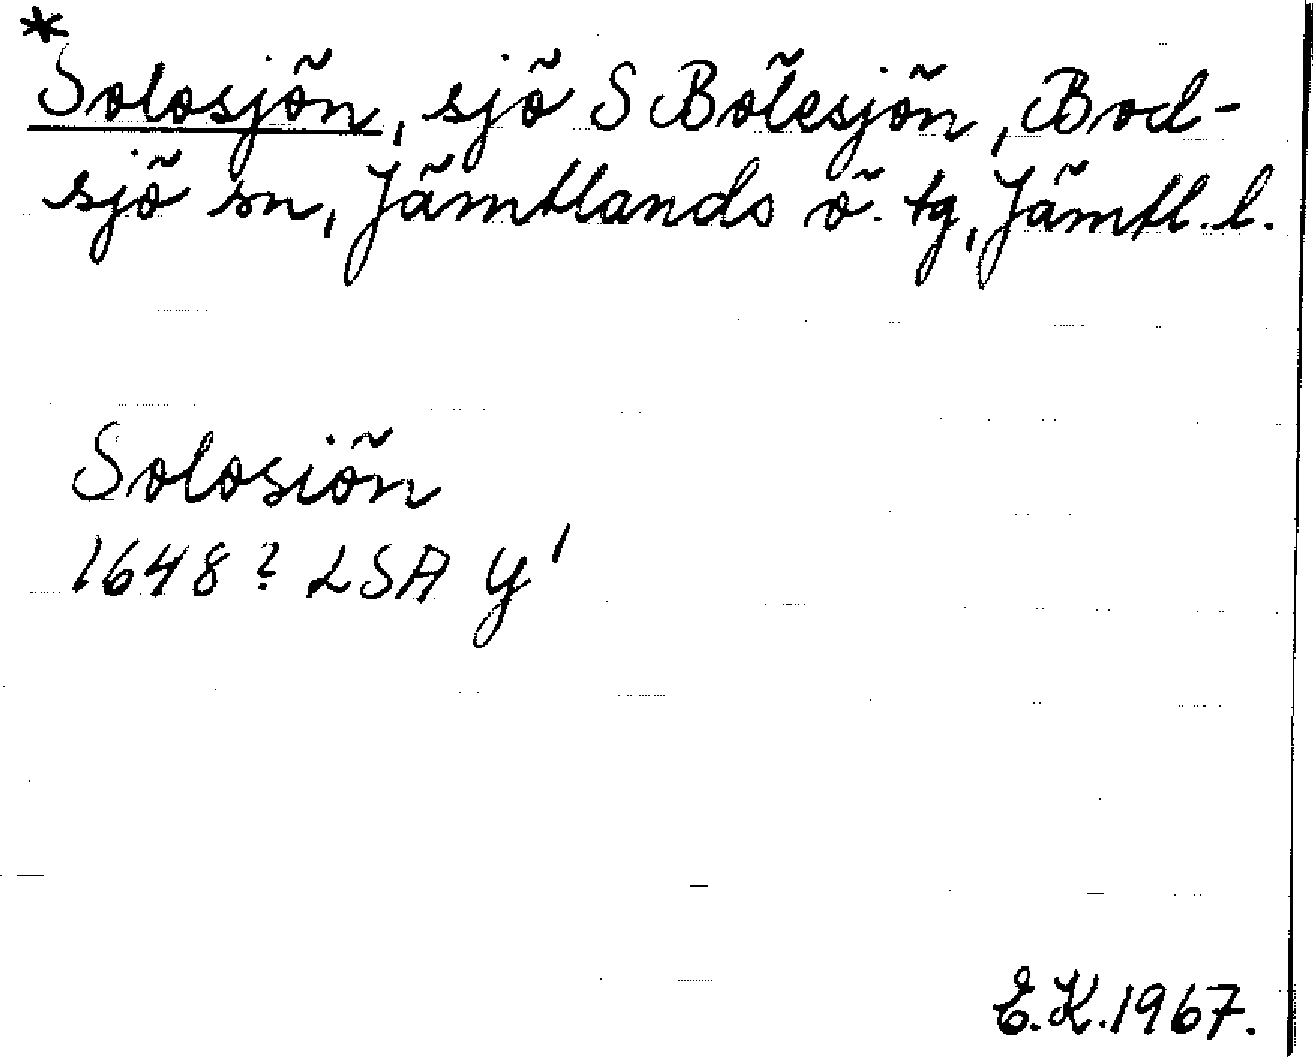 *
Solosjön, sjö S Bölesjön, Bod-
sjö sn, Jämtlands ö. tg, Jämtl. l.
Solosiön
1648? LSA Y1
E.K. 1967.